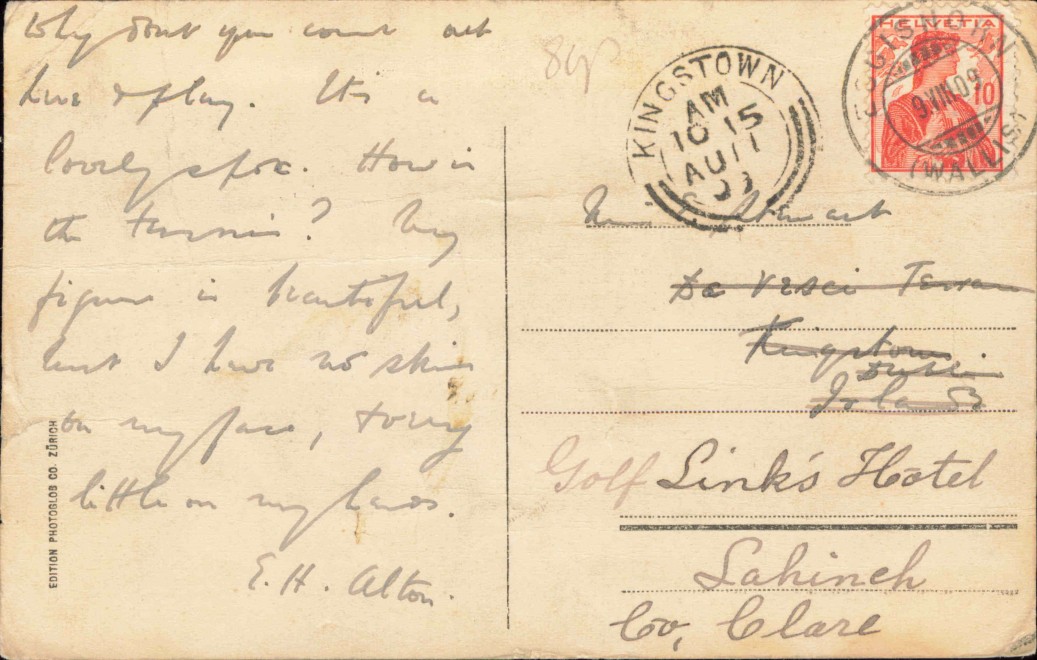 Why dont you come out
here & play. Its a
lovely spot. How is
the tennis? My
figure is beautiful,
but I have no skin
on my face, & very
little on my hands.
E. H. Alton.
EDITION PHOTOGLOB CO. ZÜRICH
80p
KINGSTOWN
AM
10 15
AU 11
HELVETIA
10
EGGISHORN
9 VIII 09
(WALLIS)
Stewart
De Vesci Terrace
Kingstown
Dublin
Golf Link's Hotel
Lahinch
Co, Clare